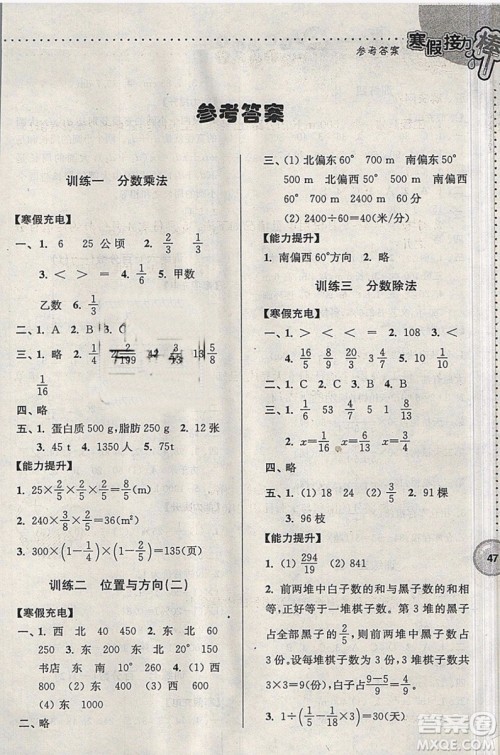 参考答案
寒假接力棒
参考答案
训练一 分数乘法
【寒假充电】
一、1. 6 25 公顷 2. 2/3 1/3
3. < > = 4. 1/6 5. 甲数
乙数 6. 1/3
二、1. A 2. B 3. C 4. B
三、1. 略 2. 1/4
1/16
四、略
五、1. 蛋白质 500 g, 脂肪 250 g 2. 12 张
3. 45 t 4. 1350 人 5. 75t
【能力提升】
1. 25×2/5×4/5=8/5(m)
2. 240×3/8×2/5=36(m²)
3. 300×(1-1/4)×(1-2/5)=135(页)
训练二 位置与方向(二)
【寒假充电】
一、1. 西 北 40 450 2. 东 北
30 250 3. 西 南 20 150
书店 东 南 35 200
4. (1) 东 400 (2) 东 北 60
250 (3) 东 南 东 北 600
二、略
三、(1) 北偏西 60° 700 m 南偏东
50° 500 m 西偏南 50° 500 m
南偏西 60° 700 m
(2) 2400÷60=40(米/分)
【能力提升】
1. 南偏西60°方向 2. 略
训练三 分数除法
【寒假充电】
一、1. < > = > 2. 108 <
3. < 4. 4/5 2/3 3/20 4/3
二、1. C 2. C 3. B 4. A
三、1. 16/5 9/14 27/2 3/4 8/13
2. x=1/16 x=3/4 x=3/8
四、略
五、1. (1) 18 24 (2) 2/3 2. 91棵
3. 96枝
【能力提升】
1. (1) 294/19 (2) 841
2. 前两堆中白子数的和与黑子数的
和都等于一堆棋子数, 第三堆的黑子
占全部黑子的 2/5, 可知前两堆的黑子
占全部黑子的 3/5。设一堆棋子数为
3 份, 三堆棋子数为 3×3=9(份), 黑
子数为 5 份, 白子占 (9-5)/9 = 4/9。
3. 1÷(1/5-1/6)=30(天)
47
答案圈
MXQE.COM